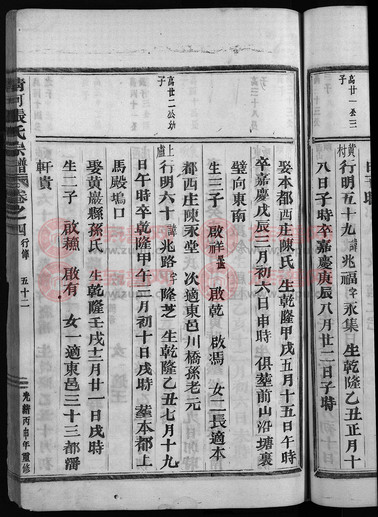 萬廿一公三子
黃村
行明五十九 諱兆福 字永集 生乾隆乙丑正月十
八日子時卒嘉慶庚辰八月廿二日子時
娶本都西庄陳氏 生乾隆甲戌五月十五日午時
卒嘉慶戊辰三月初六日申時 俱塟前山沿塘裏
壁向東南
生三子 啟祥 啟乾 啟馮 女二長適本
都西庄陳永堂 次適東邑川橋孫老元
萬廿二公幼子
上
行明六十 諱兆路 字隆芝 生乾隆乙丑七月十九
日午時卒乾隆甲午二月初十日戌時 塟本都上
馬殿塢口
娶黃巖縣孫氏 生乾隆壬戌十二月廿一日戌時
生二子 啟穮 啟有 女一適東邑三十三都潘
軒貴
清河張氏宗譜 卷之四 行傳 五十二 光緒丙申年重修